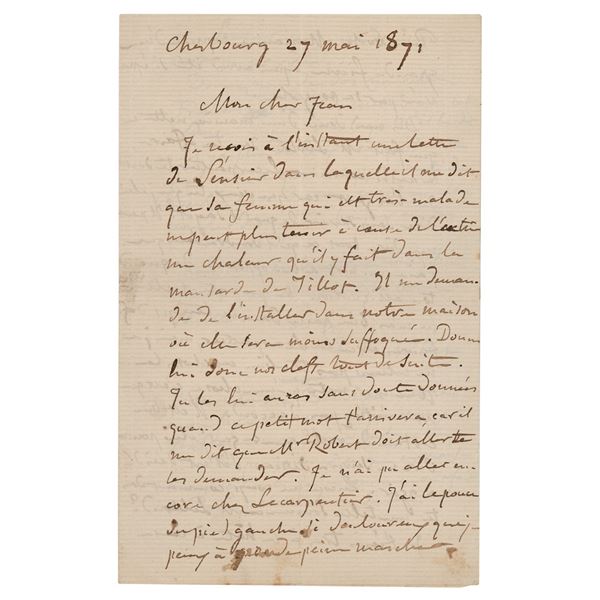 Cherbourg 27 mai 1871
Mon cher Jean
Je reçois à l'instant une lettre
de Sensier dans laquelle il me dit
que sa femme qui est très malade
ne peut plus tenir à cause de l'extrê
me chaleur qu'il y fait dans la
mansarde de Tillot. Il me deman-
de de l'installer dans notre maison
où elle sera moins suffoquée. Donne
lui donc nos clefs tout de suite.
Tu les lui auras sans doute données
quand ce petit mot t'arrivera, car il
me dit que Mr Robert doit aller te
les demander. Je n'ai pu aller en-
core chez Lecarpentier. J'ai le pouce
du pied gauche si douloureux que je
peux à grande peine marcher